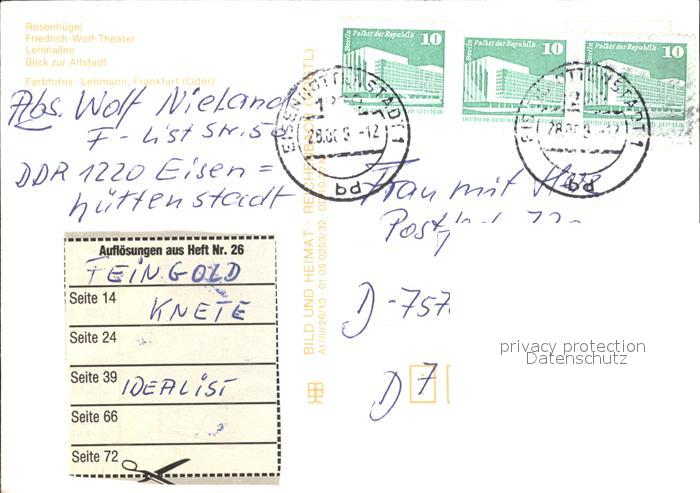 Rosenhügel
Friedrich-Wolf-Theater
Leninallee
Blick zur Altstadt
Farbfotos: Lehmann, Frankfurt (Oder)
Abs. Wolf Nieland
F-List Str.
DDR 1220 Eisen =
hüttenstadt
Auflösungen aus Heft Nr. 26
FEINGOLD
Seite 14
KNETE
Seite 24
Seite 39
IDEALIST
Seite 66
Seite 72
BILD UND HEIMAT · REICHENBACH (VOGTL)
A1/III/26/13 · 01 05 0253/32
Berlin Palast der Republik 10
Berlin Palast der Republik 10
DEUTSCHE DEMOKRATISCHE REPUBLIK
Berlin Palast der Republik 10
EISENHÜTTENSTADT 1
-12
pq
EISENHÜTTENSTADT 1
-12
pq
Frau mit Herz
Postf
D-757
D 7
privacy protection
Datenschutz